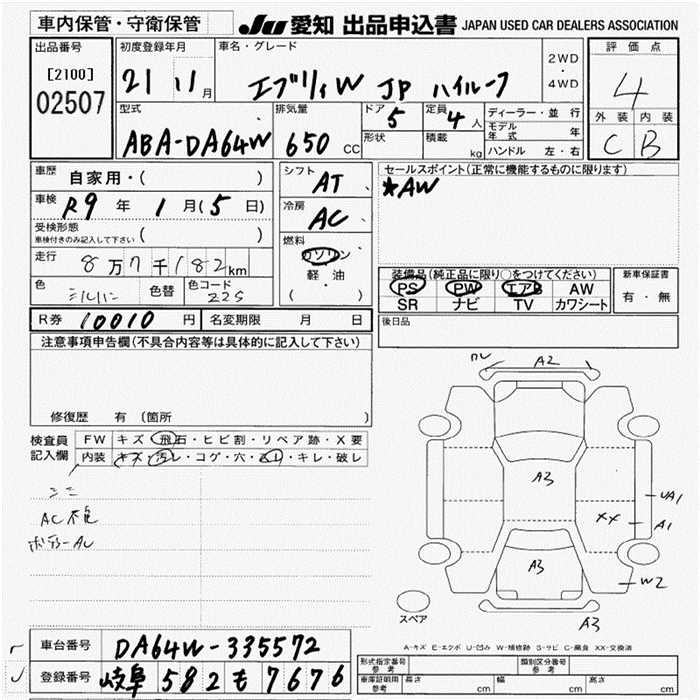 車内保管・守衛保管
JU 愛知 出品申込書 JAPAN USED CAR DEALERS ASSOCIATION
出品番号
[2100]
02507
初度登録年月
21 11月
車名・グレード
エブリィW JP ハイルーフ
2WD
・
4WD
評価点
4
外装 内装
C B
型式
ABA-DA64W
排気量
650 CC
ドア
5
形状
定員
4人
積載
kg
ディーラー・並行
モデル年式 年
ハンドル 左・右
車歴 自家用・( )
車検 R9年 1月(5日)
受検形態
車検付きのみ記入して下さい ( )
走行 8万7千182km
色 シルバー 色替 色コード Z2S
シフト
AT
冷房
AC
燃料
ガソリン
軽・油
( )
セールスポイント(正常に機能するものに限ります)
★AW
装備品(純正品に限り○をつけてください)
PS PW エアB AW
SR ナビ TV カワシート
新車保証書
有・無
R券 10010 円 名変期限 月 日
後日品
注意事項申告欄(不具合内容等は具体的に記入して下さい)
修復歴 有 (箇所
検査員記入欄
FW キズ・飛石・ヒビ割・リペア跡・X要
内装 キズ・汚レ・コゲ・穴・スレ・キレ・破レ
シミ
AC不良
ボデーAU
A2
A3
UA1
XX
A1
A3
W2
スペア
A3
A-キズ E-エクボ U-凹み W-補修跡 S-サビ C-腐食 XX-交換済
車台番号 DA64W-335572
登録番号 岐阜 582 も 7676
形式指定番号
参考
類別区分番号
参考
車庫証明用
参考
長さ cm 幅 cm 高さ cm